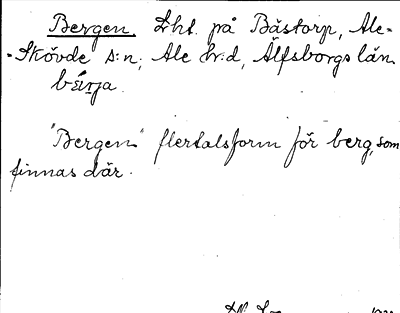 Bergen. Lht. på Båstorp, Ale-
-Skövde s:n, Ale h:d, Älfsborgs län.
"Bergen" flertalsform för berg, som
finnas där.